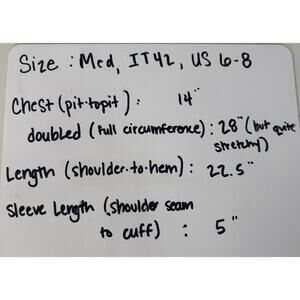 Size : Med, IT42, US 6-8
Chest (pit-to-pit) : 14"
doubled (full circumference) : 28" (but quite
stretchy)
Length (shoulder-to-hem) : 22.5"
Sleeve Length (shoulder seam
to cuff) : 5"